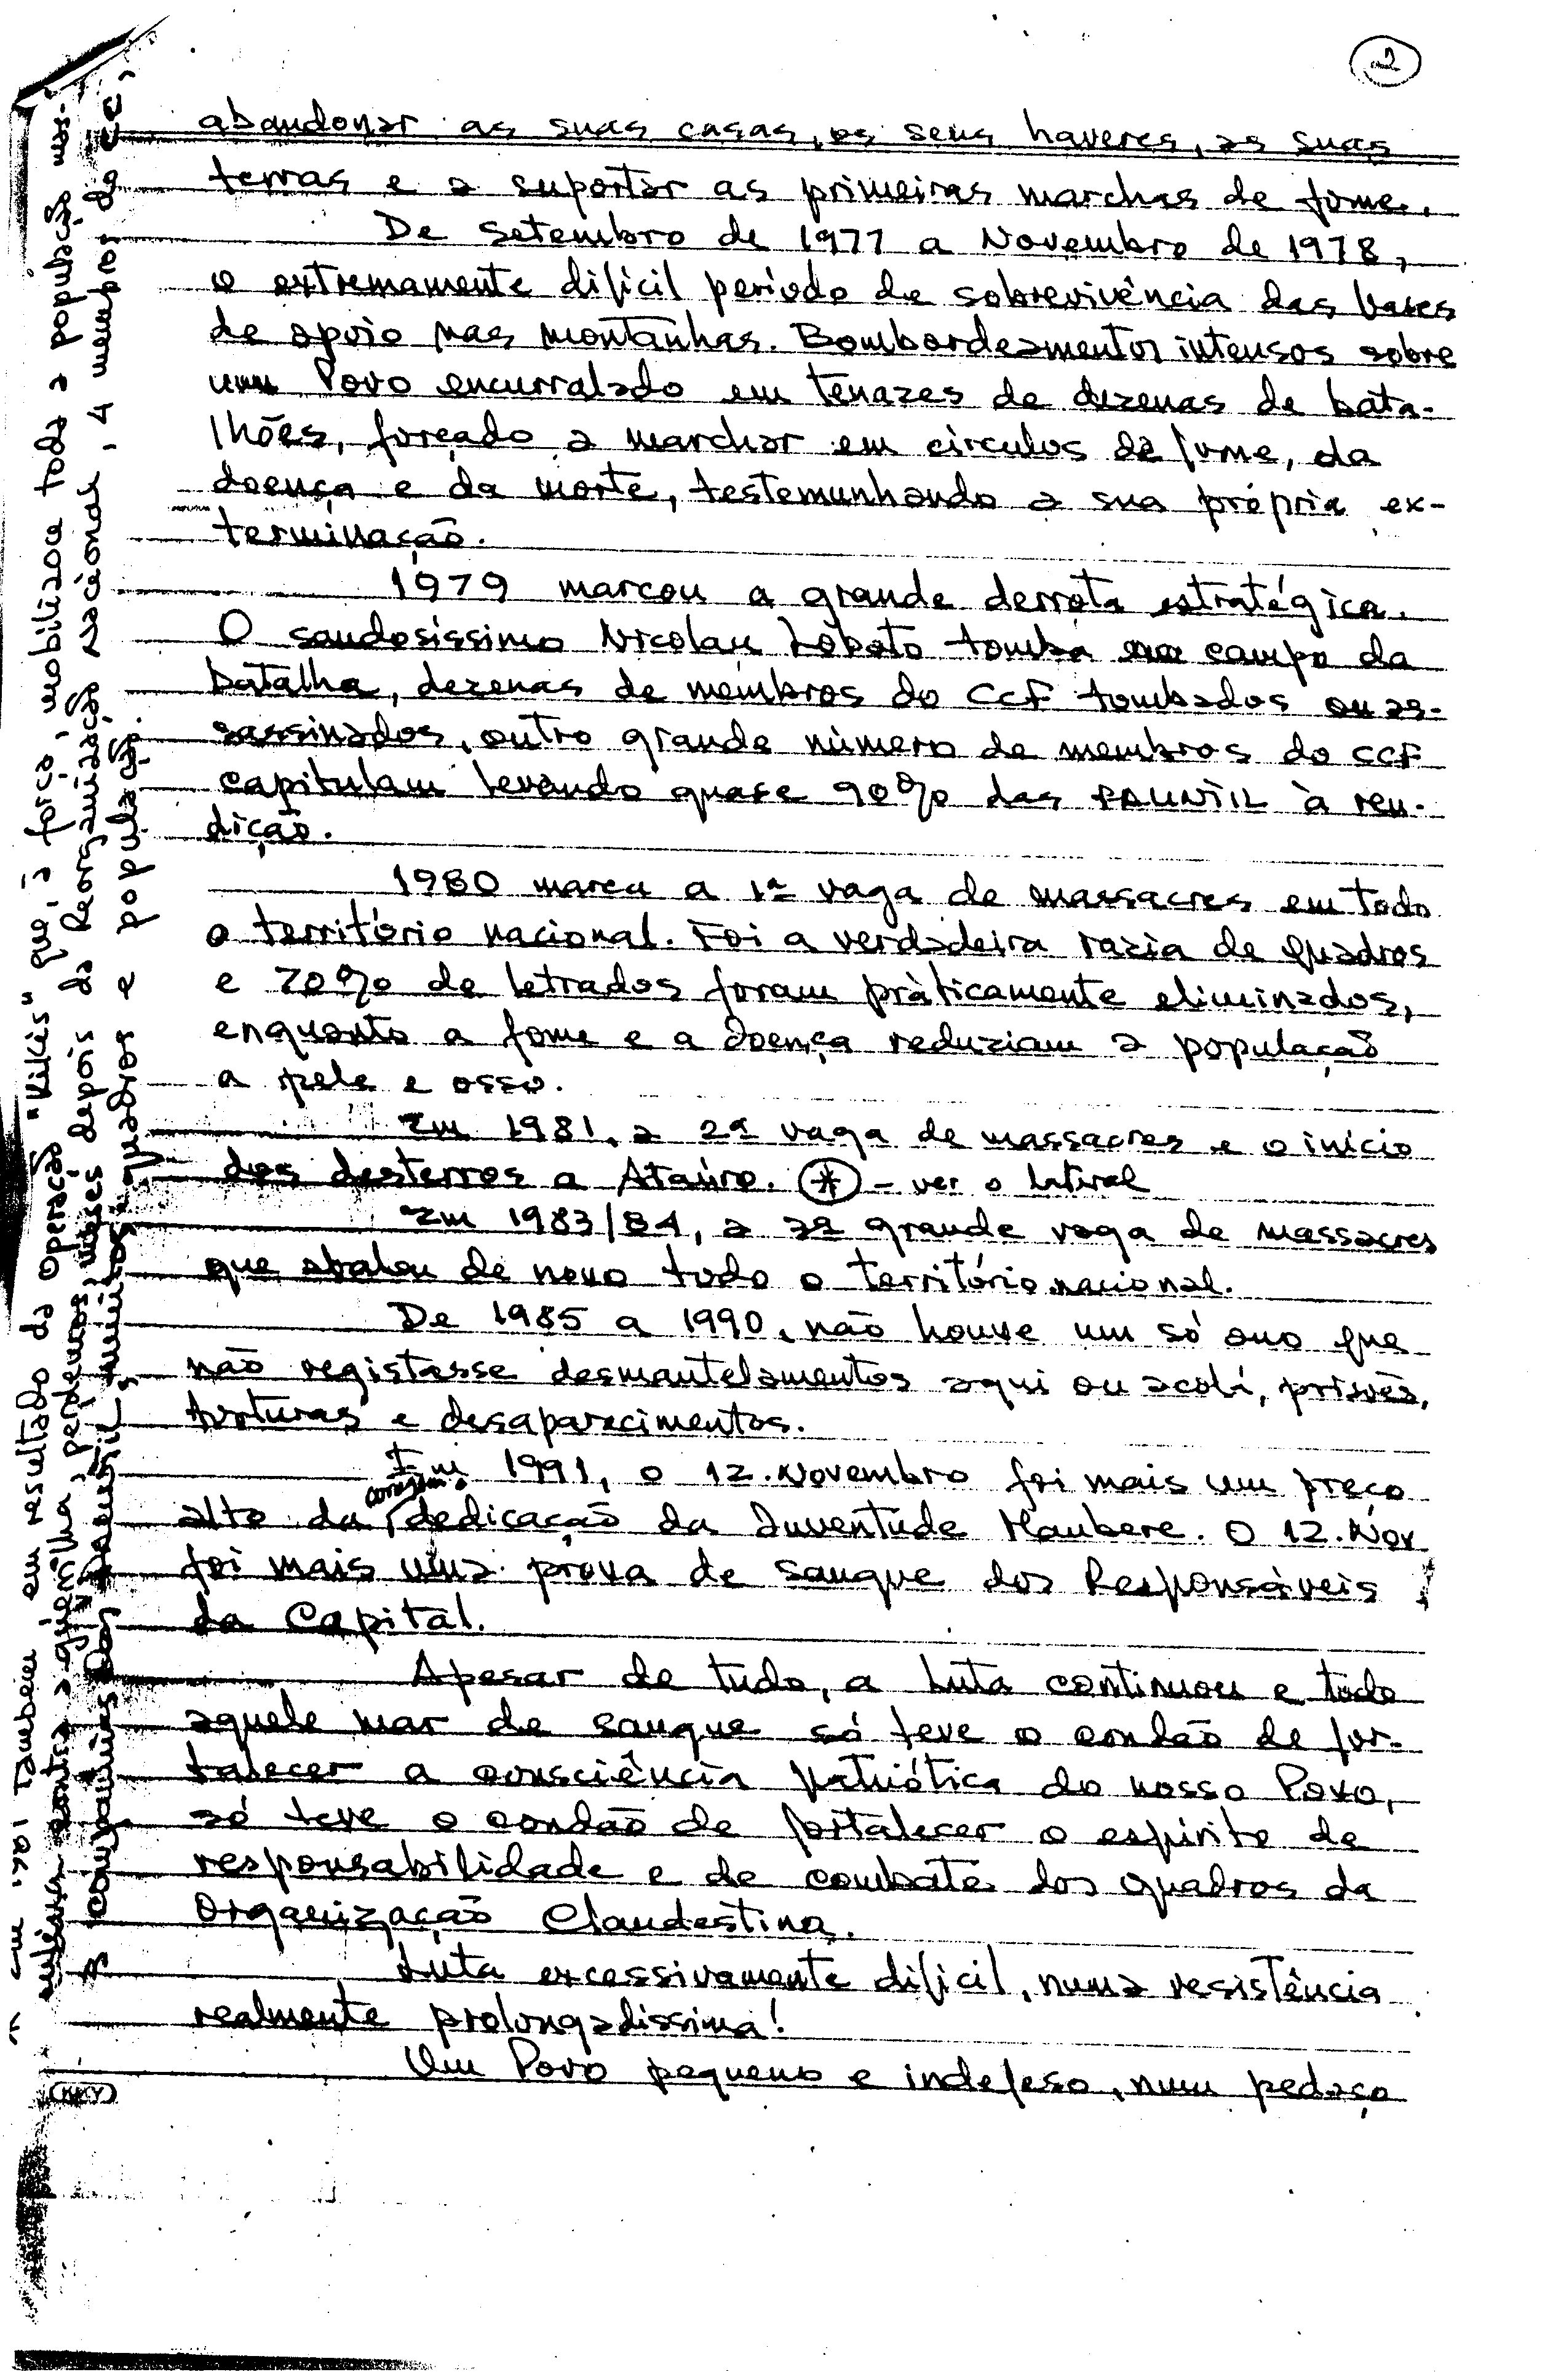 2
abandonar as suas casas, os seus haveres, as suas
terras e a suportar as primeiras marchas de fome.
De Setembro de 1977 a Novembro de 1978,
o extremamente difícil período de sobrevivência das bases
de apoio nas montanhas. Bombardeamentos intensos sobre
um Povo encurralado em tenazes de dezenas de bata-
lhões, forçado a marchar em círculos de fome, da
doença e da morte, testemunhando a sua própria ex-
terminação.
1979 marcou a grande derrota estratégica.
O saudosíssimo Nicolau Lobato tomba no campo da
batalha, dezenas de membros do CCF tombados ou as-
sassinados, outro grande número de membros do CCF
capitulam levando quase 90% das FALINTIL à ren-
dição.
1980 marca a 1ª vaga de massacres em todo
o território nacional. Foi a verdadeira razia de quadros
e 70% de letrados foram pràticamente eliminados,
enquanto a fome e a doença reduziam a população
a pele e osso.
Em 1981, a 2ª vaga de massacres e o início
dos desterros a Ataúro. (*) - ver o lateral
Em 1983/84, a 3ª grande vaga de massacres
que abalou de novo todo o território nacional.
De 1985 a 1990, não houve um só ano que
não registasse desmantelamentos aqui ou acolá, prisões,
torturas e desaparecimentos.
Em 1991, o 12.Novembro foi mais um preço
alto da coragem e dedicação da Juventude Maubere. O 12.Nov
foi mais uma prova de sangue dos Responsáveis
da Capital.
Apesar de tudo, a Luta continuou e todo
aquele mar de sangue só teve o condão de for-
talecer a consciência patriótica do nosso Povo,
só teve o condão de fortalecer o espírito de
responsabilidade e de combate dos quadros da
Organização Clandestina.
Luta excessivamente difícil, numa resistência
realmente prolongadíssima!
Um Povo pequeno e indefeso, num pedaço
KKY
Em 1981 também em resultado da operação "Kikis" que, à força, mobilizou toda a população mas-
culina contra a guerrilha, perdemos, meses depois da Reorganização Nacional, 4 membros do CC,
companhias das FALINTIL, muitos quadros e população.